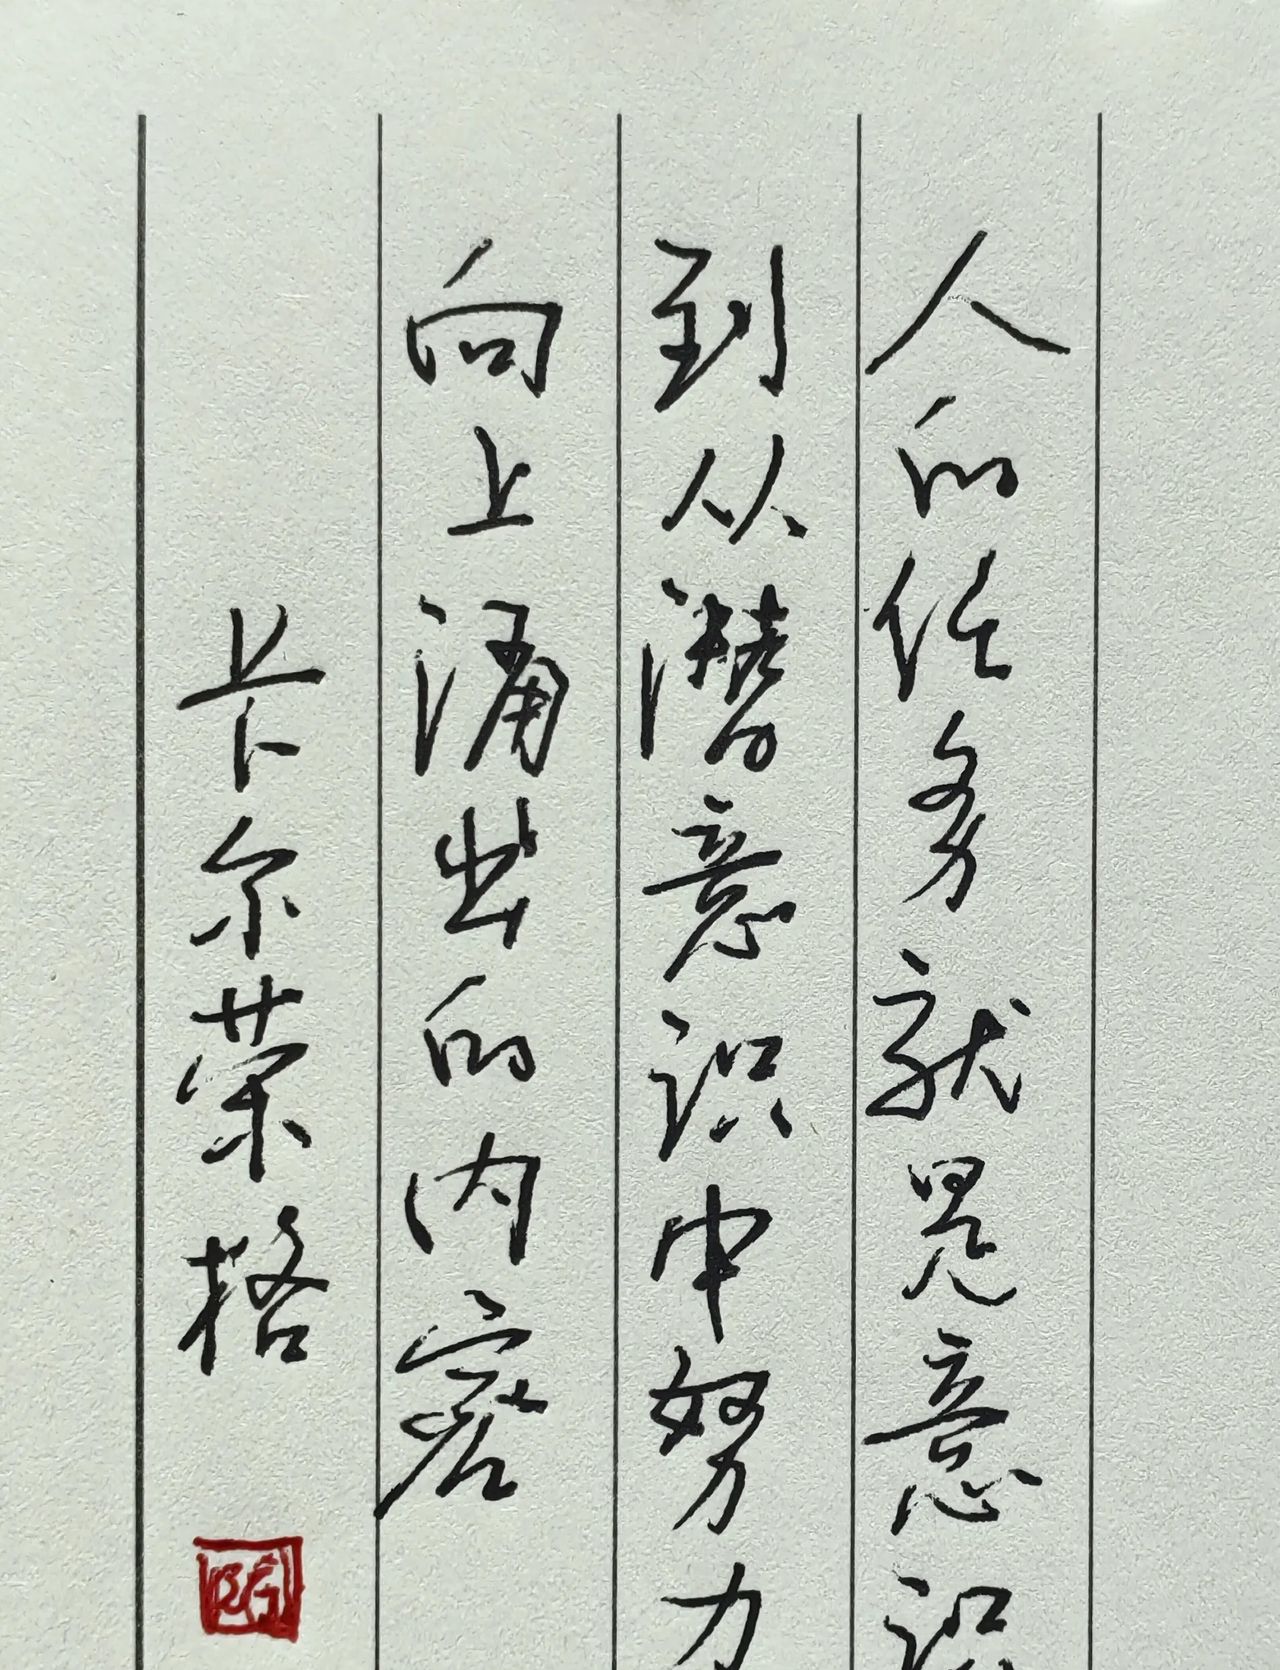 人的任务就是意识
到从潜意识中努力
向上涌出的内容
卡尔荣格